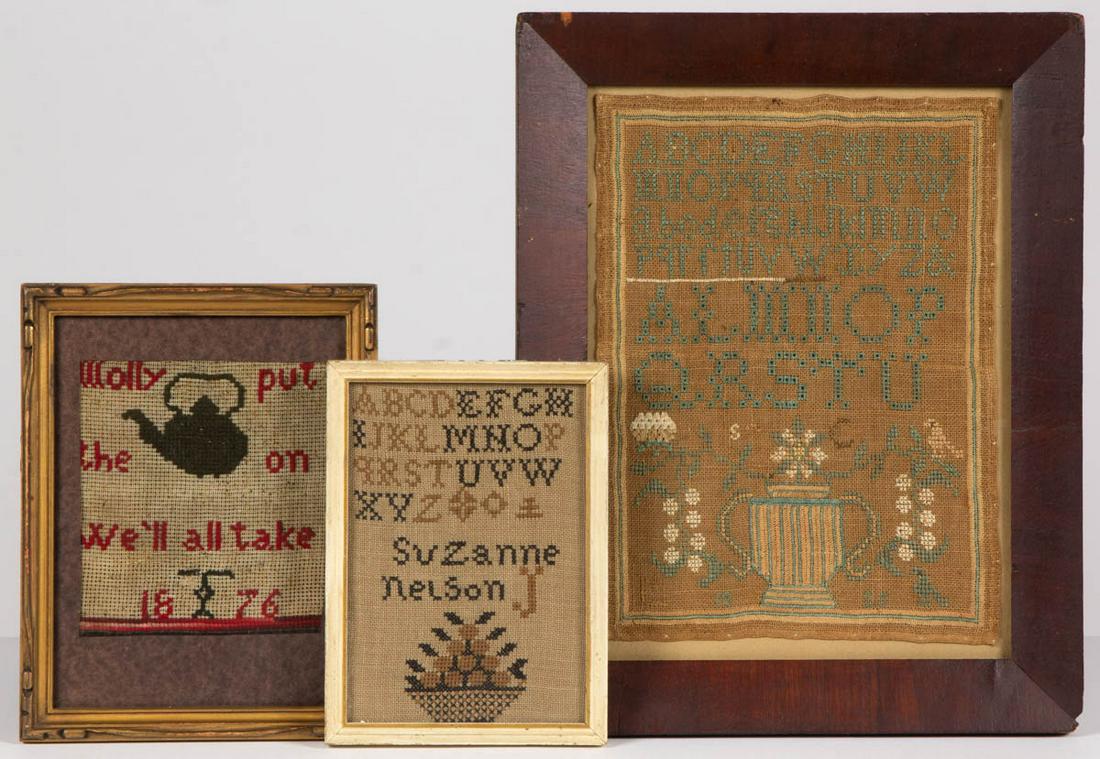 Molly put
the on
We'll all take
18 T 76
ABCDEFGH
IJKLMNOP
QRSTUVW
XYZ
Suzanne
Nelson J
ABCDEFGHIJKL
MNOPQRSTUVW
abcdefghijklmno
WXYZ&
ALMNOP
QRSTU
S C